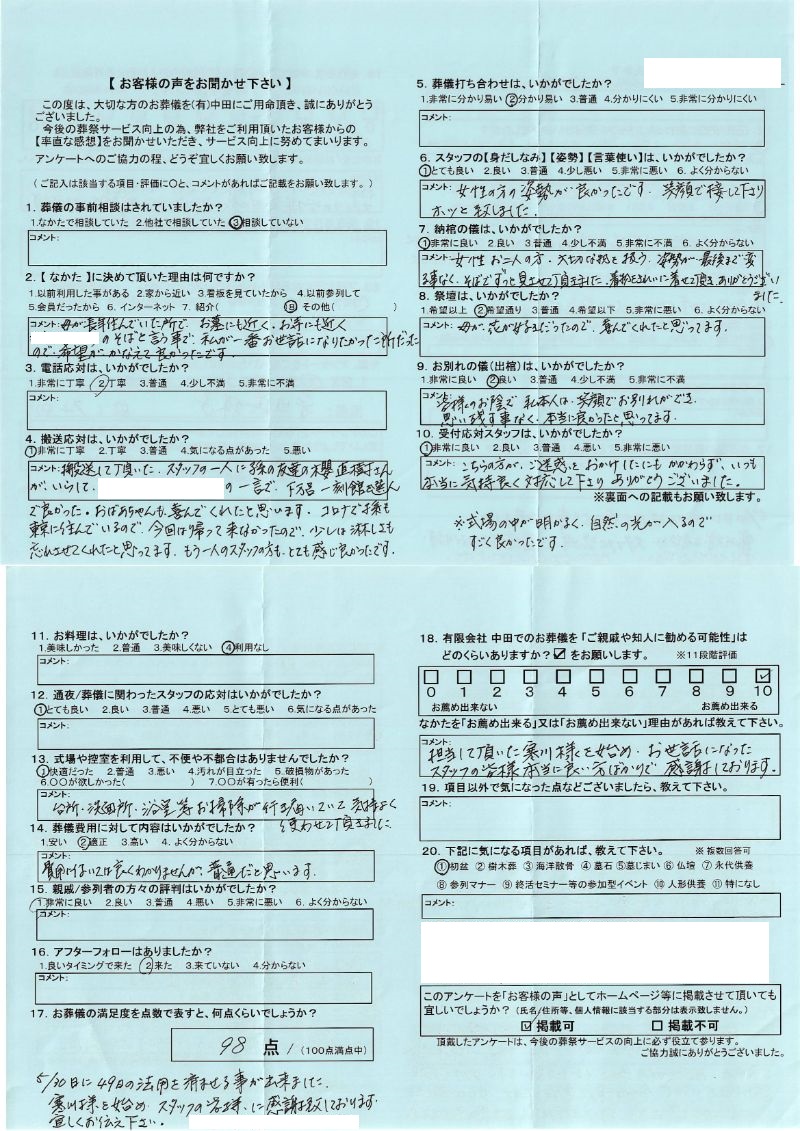 【 お客様の声をお聞かせ下さい 】
この度は、大切な方のお葬儀を(有)中田にご用命頂き、誠にありがとう
ございました。
今後の葬祭サービス向上の為、弊社をご利用頂いたお客様からの
【率直な感想】をお聞かせいただき、サービス向上に努めてまいります。
アンケートへのご協力の程、どうぞ宜しくお願い致します。
(ご記入は該当する項目・評価に○と、コメントがあればご記載をお願い致します。)
1. 葬儀の事前相談はされていましたか?
1.なかたで相談していた 2.他社で相談していた ③相談していない
コメント:
2.【 なかた 】に決めて頂いた理由は何ですか?
1.以前利用した事がある 2.家から近い 3.看板を見ていたから 4.以前参列して
5.会員だったから 6. インターネット 7. 紹介( ) ⑧ その他( )
コメント: 母が長年住んでいた所で、お墓にも近く、お寺にも近く
のそばと言う事で、私が一番お世話になりたかった所だった
ので、希望がかなえて良かったです。
3. 電話応対は、いかがでしたか?
1.非常に丁寧 ②丁寧 3.普通 4.少し不満 5.非常に不満
コメント:
4. 搬送応対は、いかがでしたか?
①非常に丁寧 2.丁寧 3.普通 4.気になる点があった 5.悪い
コメント: 搬送して頂いた、スタッフの一人に孫の友達の櫻直樹さん
が、いらして、 の一言で、下万呂一刻館を選ん
で良かった。おばあちゃんも喜んでくれたと思います。コロナで孫も
東京に住んでいるので、今回は帰って来なかったので、少しは淋しさも
忘れさせてくれたと思ってます。もう一人のスタッフの方も、とても感じ良かったです。
5. 葬儀打ち合わせは、いかがでしたか?
1.非常に分かり易い ②分かり易い 3.普通 4.分かりにくい 5.非常に分かりにくい
コメント:
6. スタッフの【身だしなみ】【姿勢】【言葉使い】は、いかがでしたか?
①とても良い 2.良い 3.普通 4.少し悪い 5.非常に悪い 6.よく分からない
コメント: 女性の方の姿勢が良かったです。笑顔で接して下さり
ホッと致しました。
7. 納棺の儀は、いかがでしたか?
①非常に良い 2.良い 3.普通 4.少し不満 5.非常に不満 6.よく分からない
コメント: 女性お二人の方、大切な物を扱う、姿勢が最後まで変
る事なく、そばでずっと見させて頂きました。着物をきれいに着せて頂き、ありがとうござい
ました。
8. 祭壇は、いかがでしたか?
1.希望以上 ②希望通り 3.普通 4.希望以下 5.非常に悪い 6.よく分からない
コメント: 母が、花が好きだったので、喜んでくれたと思ってます。
9. お別れの儀(出棺)は、いかがでしたか?
1.非常に良い ②良い 3.普通 4.少し不満 5.非常に不満
コメント: 皆様のお陰で、私本人は、笑顔でお別れができ、
思い残す事なく、本当に良かったと思ってます。
10. 受付応対スタッフは、いかがでしたか?
①非常に良い 2.良い 3.普通 4.悪い 5.非常に悪い
コメント: こちらの方が、ご迷惑をおかけしたにもかかわらず、いつも
本当に気持良く対応して下さり ありがとうございました。
※裏面への記載もお願い致します。
※式場の中が明かるく、自然の光が入るので
すごく良かったです。
11. お料理は、いかがでしたか?
1.美味しかった 2.普通 3.美味しくない ④利用なし
コメント:
12. 通夜/葬儀に関わったスタッフの応対はいかがでしたか?
①とても良い 2.良い 3.普通 4.悪い 5.とても悪い 6.気になる点があった
コメント:
13. 式場や控室を利用して、不便や不都合はありませんでしたか?
①快適だった 2.普通 3.悪い 4.汚れが目立った 5.破損物があった
6.〇〇が欲しかった( ) 7.〇〇が有ったら便利( )
コメント: 台所・洗面所・浴室等お掃除が行き届いていて 気持よく
使わせて頂きました。
14. 葬儀費用に対して内容はいかがでしたか?
1.安い ②適正 3.高い 4. よく分からない
コメント: 費用については良くわかりませんが、普通だと思います。
15. 親戚/参列者の方々の評判はいかがでしたか?
①非常に良い 2.良い 3.普通 4.悪い 5.非常に悪い 6. よく分からない
コメント:
16. アフターフォローはありましたか?
1.良いタイミングで来た ②来た 3.来ていない 4.分からない
コメント:
17. お葬儀の満足度を点数で表すと、何点くらいでしょうか?
98 点 / (100点満点中)
5/30日に49日の法用を済ませる事が出来ました。
寒川様を始め、スタッフの皆様、に感謝致しております。
宜しくお伝え下さい。
18. 有限会社 中田でのお葬儀を「ご親戚や知人に勧める可能性」は
どのくらいありますか?☑をお願いします。 ※11段階評価
□ □ □ □ □ □ □ □ □ □ ☑
0 1 2 3 4 5 6 7 8 9 10
お薦め出来ない お薦め出来る
なかたを「お薦め出来る」又は「お薦め出来ない」理由があれば教えて下さい。
コメント: 担当して頂いた寒川様を始め、お世話になった
スタッフの皆様本当に良い方ばかりで感謝しております。
19. 項目以外で気になった点などございましたら、教えて下さい。
コメント:
20. 下記に気になる項目があれば、教えて下さい。 ※ 複数回答可
①初盆 ② 樹木葬 ③ 海洋散骨 ④ 墓石 ⑤墓じまい ⑥ 仏壇 ⑦ 永代供養
⑧ 参列マナー ⑨ 終活セミナー等の参加型イベント ⑩ 人形供養 ⑪ 特になし
コメント:
このアンケートを「お客様の声」としてホームページ等に掲載させて頂いても
宜しいでしょうか?(氏名/住所等、個人情報に該当する部分は表示致しません。)
☑ 掲載可 □ 掲載不可
頂戴したアンケートは、今後の葬祭サービスの向上に必ず役立て参ります。
ご協力誠にありがとうございました。